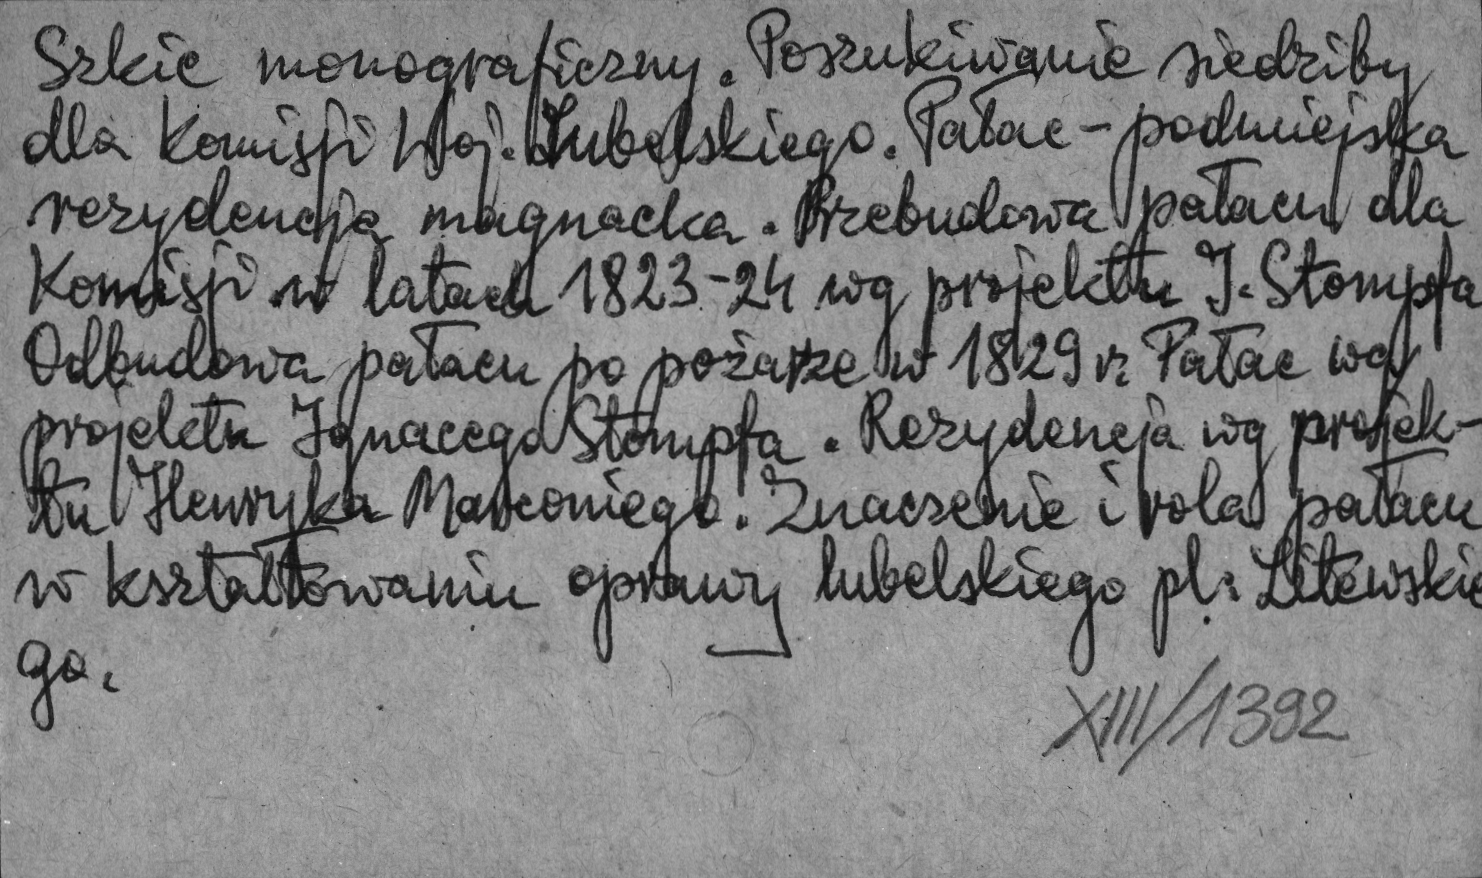 Szkic monograficzny. Poszukiwanie siedziby
dla Komisji Woj. Lubelskiego. Pałac - podmiejska
rezydencja magnacka. Przebudowa pałacu dla
Komisji w latach 1823-24 wg projektu J. Stompfa
Odbudowa pałacu po pożarze w 1829 r. Pałac wg
projektu Ignacego Stompfa. Rezydencja wg projek-
tu Henryka Marconiego. Znaczenie i rola pałacu
w kształtowaniu oprawy lubelskiego pl. Litewskie
go.
XIII/1392